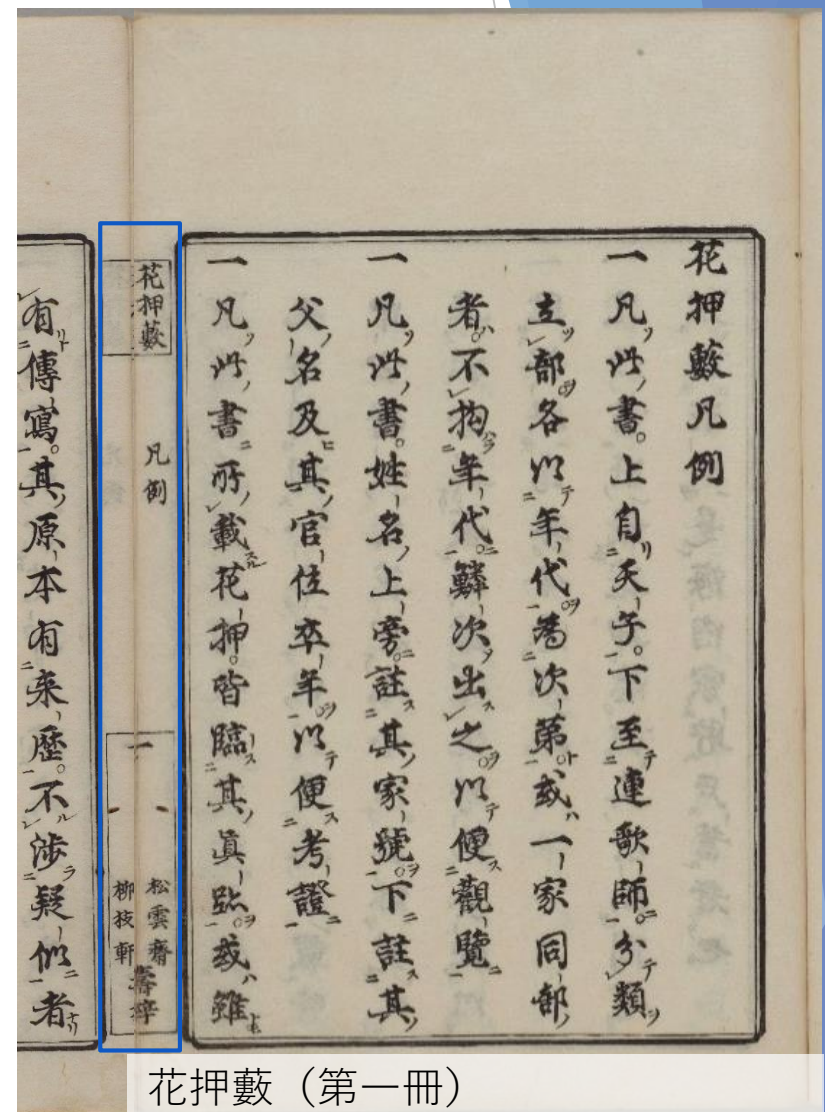 花押藪凡例
一凡此書。上自天子。下至連歌師。分類
立部。各以年代。為次第。或一家同部
者。不拘年代。鱗次出之。以便觀覽
一凡此書。姓名上旁。註其家號。下註其
父名及其官位卒年。以便考證
一凡此書所載花押。皆臨其眞跡。或雖
花押藪
凡例
一
松雲齋
柳枝軒
壽梓
有傳寫。其原本有来歴。不渉疑似者
花押藪（第一冊）